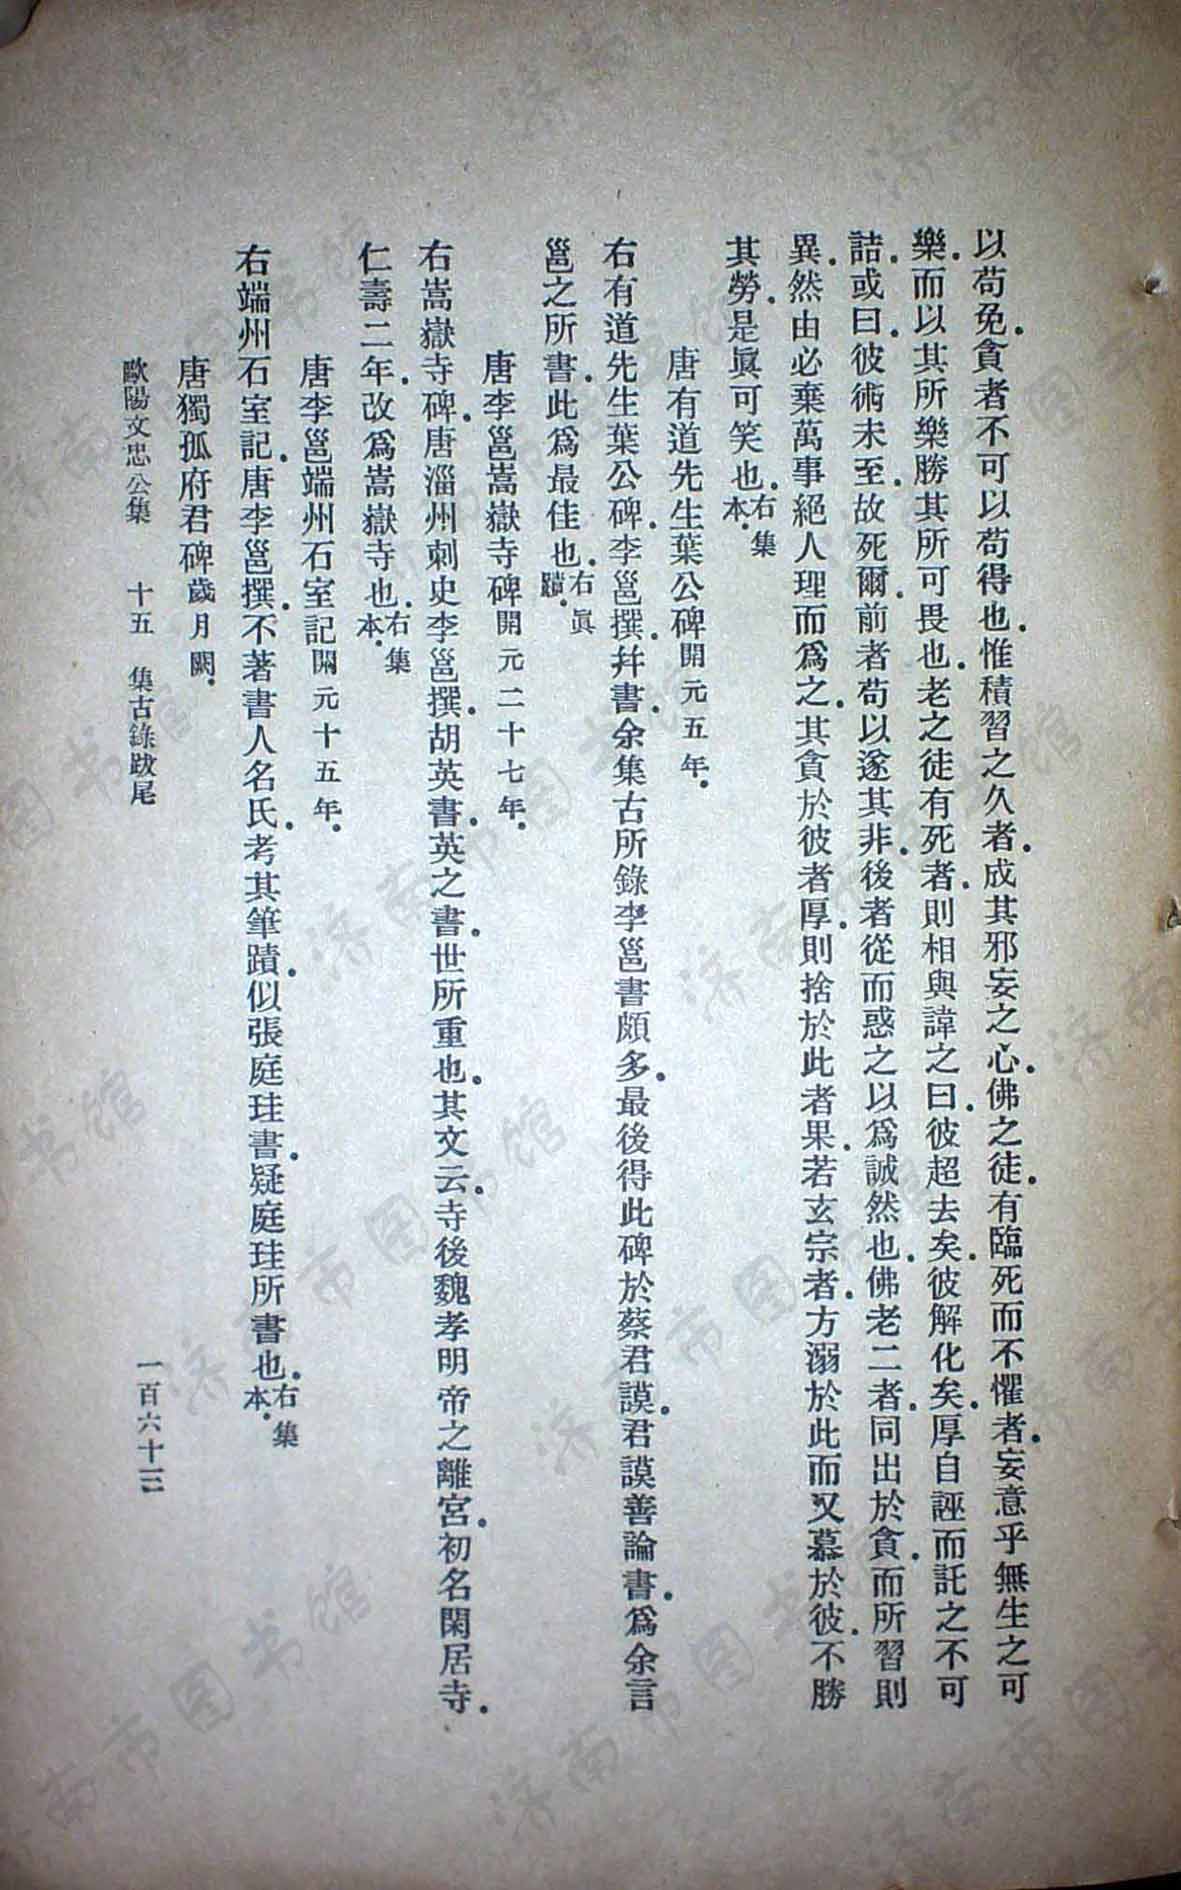 以苟免.貪者不可以苟得也.惟積習之久者.成其邪妄之心.佛之徒.有臨死而不懼者.妄意乎無生之可
樂.而以其所樂勝其所可畏也.老之徒有死者.則相與諱之曰.彼超去矣.彼解化矣.厚自誣而託之不可
詰.或曰.彼術未至.故死爾.前者苟以遂其非.後者從而惑之以爲誠然也.佛老二者.同出於貪.而所習則
異.然由必棄萬事絕人理而爲之.其貪於彼者厚.則捨於此者果.若玄宗者.方溺於此而又慕於彼.不勝
其勞.是眞可笑也.右集本.
唐有道先生葉公碑開元五年.
右有道先生葉公碑.李邕撰.幷書.余集古所錄李邕書頗多.最後得此碑於蔡君謨.君謨善論書.爲余言
邕之所書.此爲最佳也.右眞蹟.
唐李邕嵩嶽寺碑開元二十七年.
右嵩嶽寺碑.唐淄州刺史李邕撰.胡英書.英之書.世所重也.其文云.寺後魏孝明帝之離宮.初名閑居寺.
仁壽二年.改爲嵩嶽寺也.右集本.
唐李邕端州石室記開元十五年.
右端州石室記.唐李邕撰.不著書人名氏.考其筆蹟.似張庭珪書.疑庭珪所書也.右集本.
唐獨孤府君碑歲月闕.
歐陽文忠公集 十五 集古錄跋尾 一百六十三
济南市图书馆